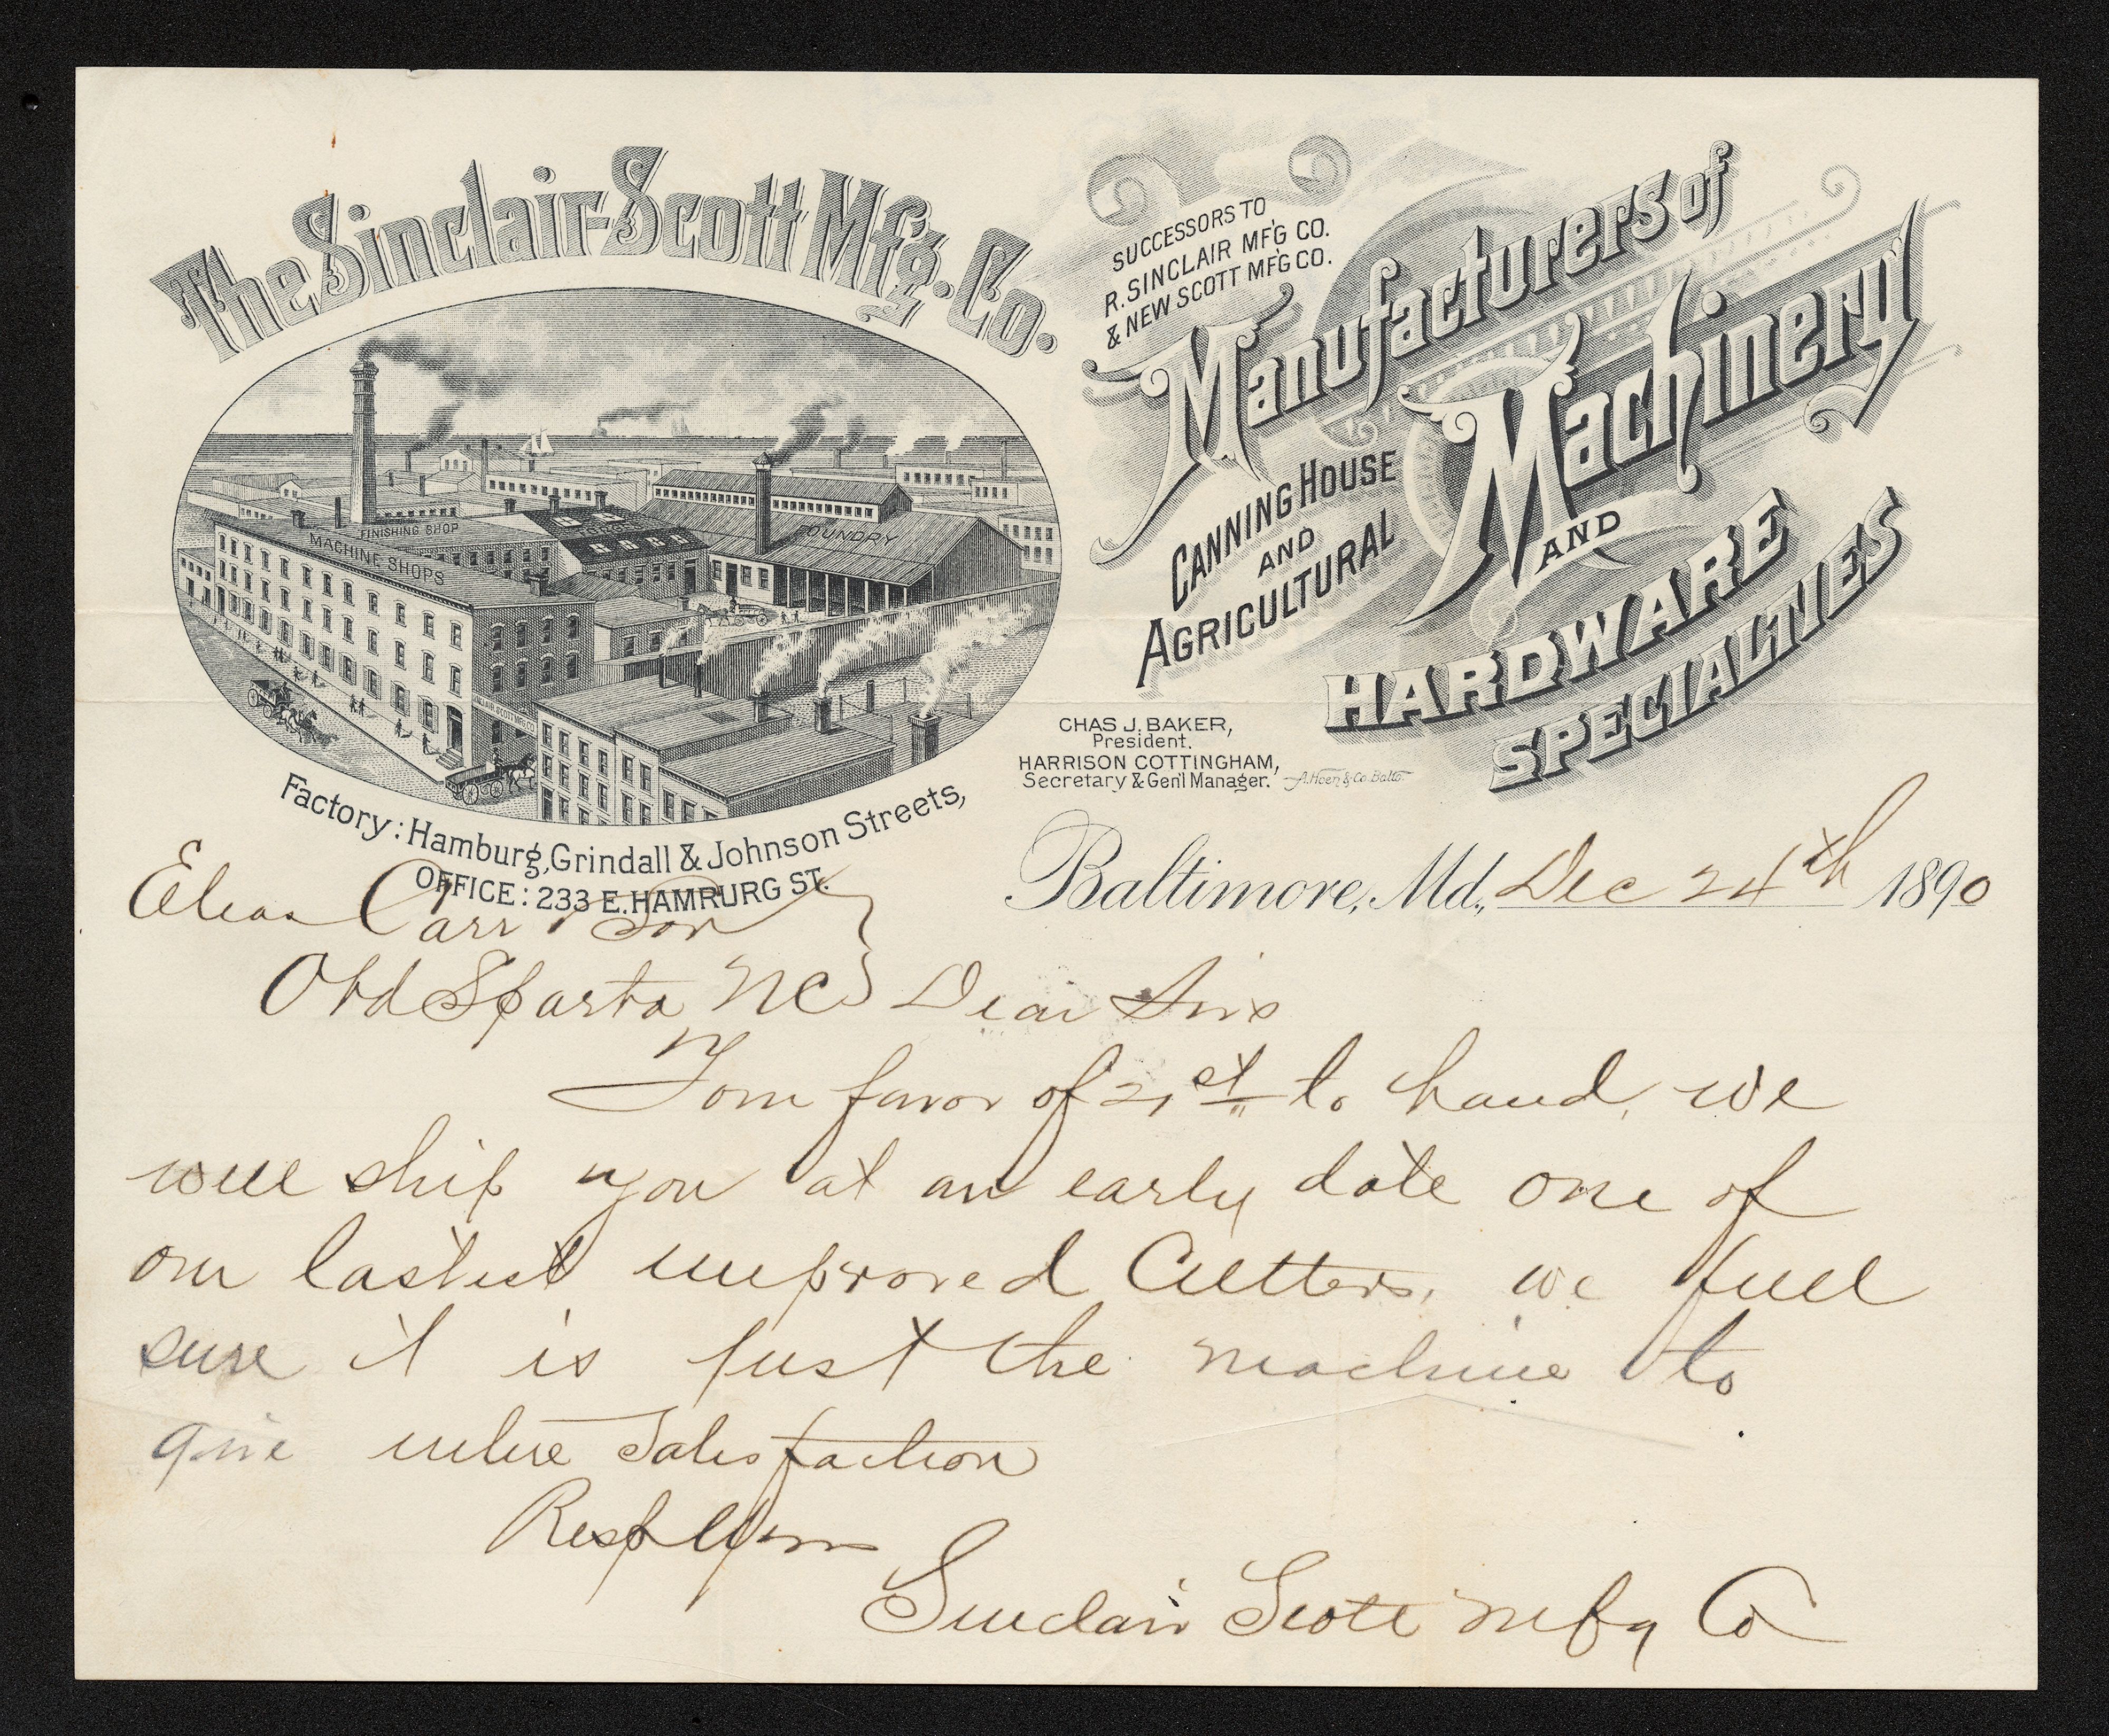 The Sinclair-Scott Mf'g. Co.
SUCCESSORS TO
R. SINCLAIR MF'G CO.
& NEW SCOTT MF'G CO.
Manufacturers of
CANNING HOUSE
AND
AGRICULTURAL
Machinery
AND
HARDWARE
SPECIALTIES
FINISHING SHOP
MACHINE SHOPS
FOUNDRY
CHAS J. BAKER,
President.
HARRISON COTTINGHAM,
Secretary & Gen'l Manager.
A. Hoen & Co. Balto.
Factory: Hamburg, Grindall & Johnson Streets,
OFFICE: 233 E. HAMRURG ST.
Baltimore, Md., Dec 24th 1890
Elias Carr & Son
Old Sparta NC Dear Sirs
Your favor of 21st to hand, we
will ship you at an early date one of
our lastest improved Cutters, we fuel
sure it is just the machine to
give entire satisfaction
Resply Yours
Sinclair Scott Mfg Co